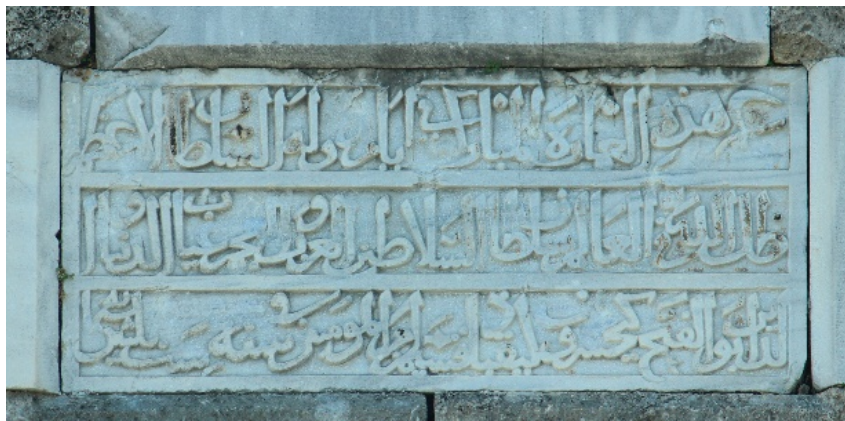 عمر هذه العمارة المباركة في ايام دولة السلطان الاعظم
ظل الله في العالم سلطان السلاطين العرب والعجم غياث الدنيا و
الدين ابو الفتح كيخسرو بن كيقباد قسيم امير المؤمنين في سنة